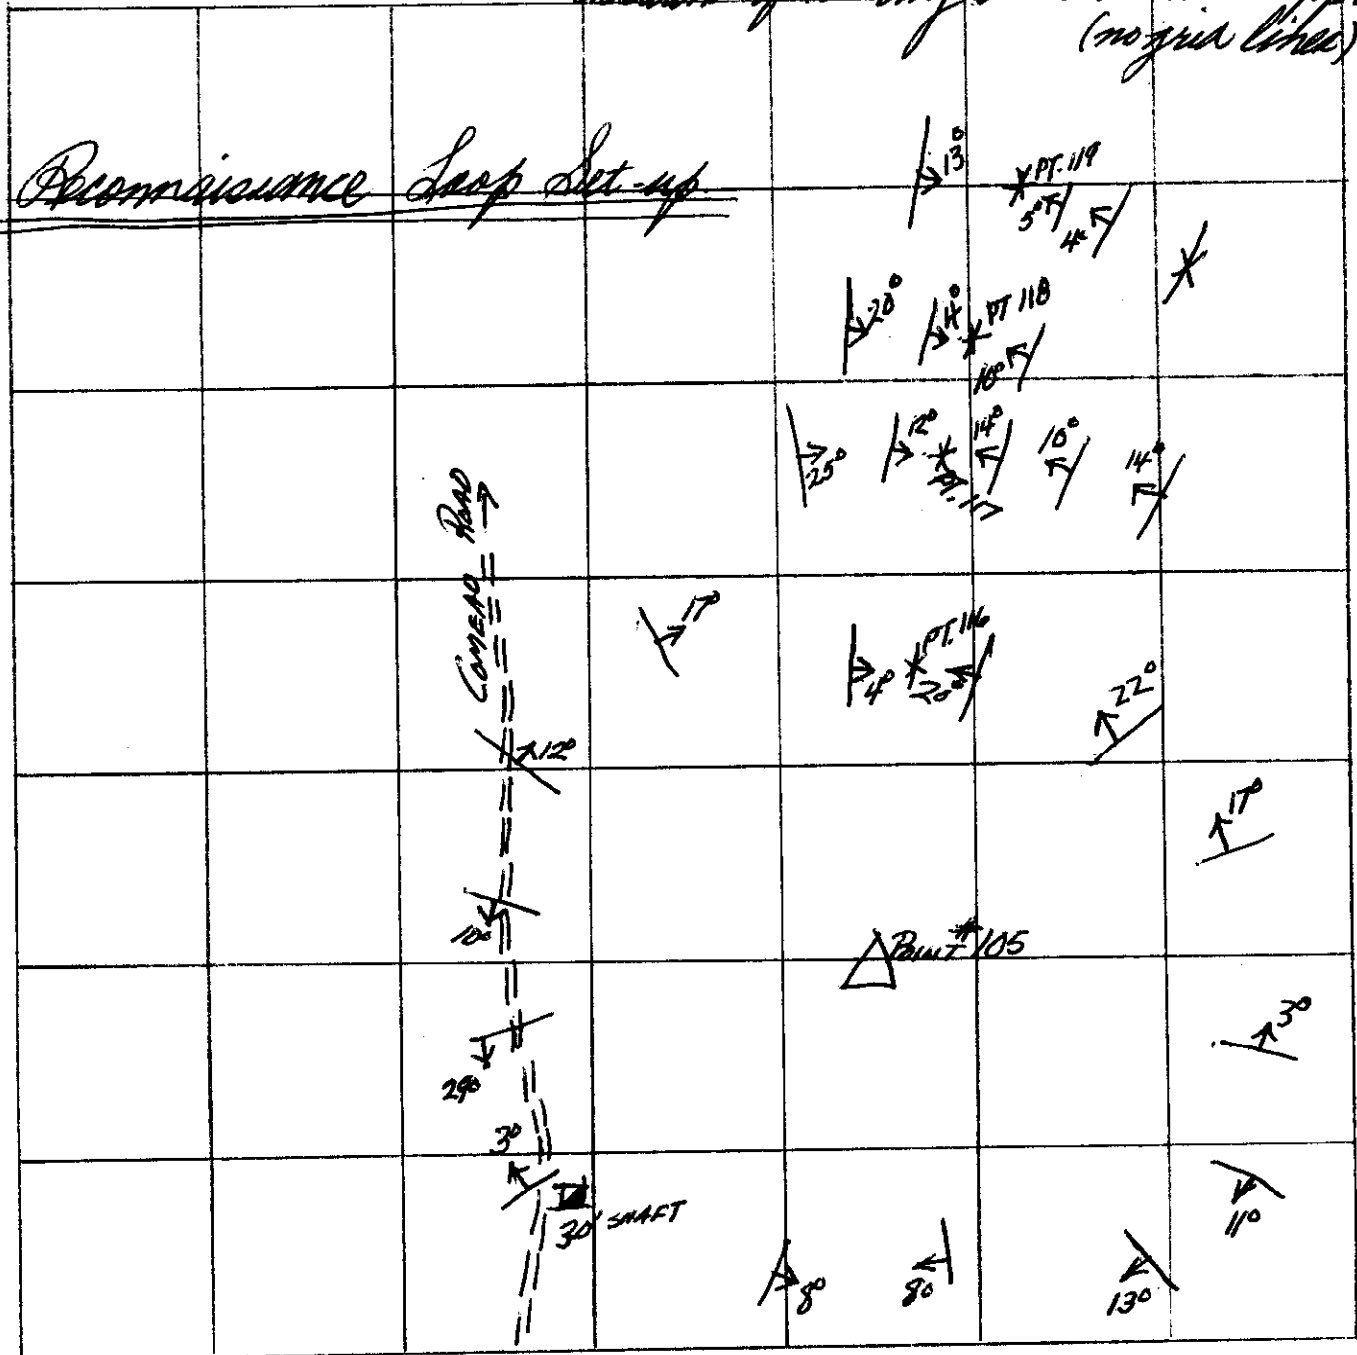 (no grid lines)
Reconnaisiance Loop Set-up.
13°
PT. 119
5°
4°
20°
4°
PT 118
10°
25°
12°
PT. 117
14°
10°
14°
ROAD
17°
4°
PT. 116
20°
22°
12°
17°
10°
POINT #105
29°
3°
3°
30' SHAFT
11°
8°
8°
13°